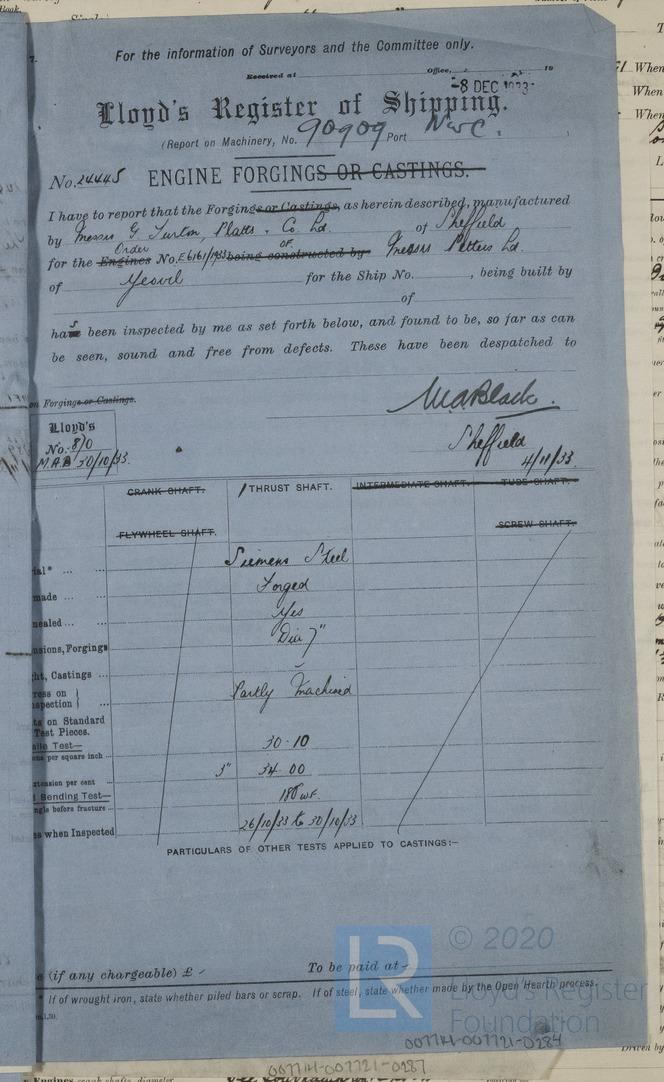 For the information of Surveyors and the Committee only.
Received at Office, 19
-8 DEC 1933
Lloyd's Register of Shipping.
(Report on Machinery, No. 90909 Port Nwc. )
No. 24445 ENGINE FORGINGS OR CASTINGS.
I have to report that the Forgings or Castings, as herein described, manufactured
by Messrs G Turton, Platts & Co Ld. of Sheffield
Order OF
for the Engines No. E6161/1933 being constructed by Messrs Petters Ld.
of Yeovil for the Ship No. , being built by
of
has been inspected by me as set forth below, and found to be, so far as can
be seen, sound and free from defects. These have been despatched to
on Forgings or Castings.
W.A.Black.
Lloyd's
No. 810
MAB 30/10/33.
Sheffield
4/11/33.
CRANK SHAFT. 1 THRUST SHAFT. INTERMEDIATE SHAFT. TUBE SHAFT.
FLYWHEEL SHAFT. SCREW SHAFT.
ial* ... ... Siemens Steel
made ... ... Forged
nealed ... ... Yes
nsions, Forgings Dia 7"
ht, Castings ...
ress on
nspection ... Partly Machined
ts on Standard
Test Pieces.
ile Test—
ns per square inch ... 30.10
xtension per cent 3" 34.00
Bending Test—
ngle before fracture 180° w.F.
s when Inspected 26/10/33 to 30/10/33
PARTICULARS OF OTHER TESTS APPLIED TO CASTINGS:—
e (if any chargeable) £ - To be paid at -
* If of wrought iron, state whether piled bars or scrap. If of steel, state whether made by the Open Hearth process.
LR © 2020
Lloyd's Register
Foundation
007714-007721-0284
007714-007721-0287